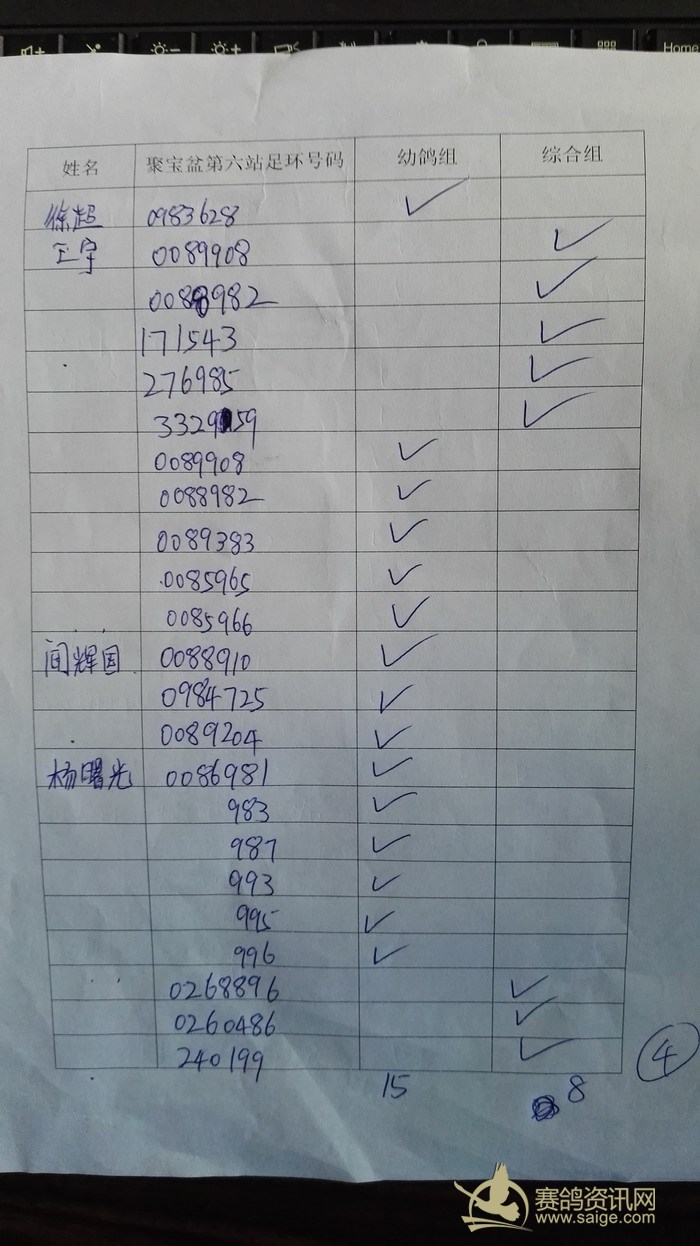 Home
姓名 聚宝盆第六站足环号码 幼鸽组 综合组
徐超 0983628 ✓
王宇 0089908 ✓
0088982 ✓
171543 ✓
276985 ✓
3329159 ✓
0089908 ✓
0088982 ✓
0089383 ✓
0085965 ✓
0085966 ✓
闻辉国 0088910 ✓
0984725 ✓
0089204 ✓
杨曙光 0086981 ✓
983 ✓
987 ✓
993 ✓
995 ✓
996 ✓
0268896 ✓
0260486 ✓
240199 ✓
15 8
4
赛鸽资讯网
www.saige.com